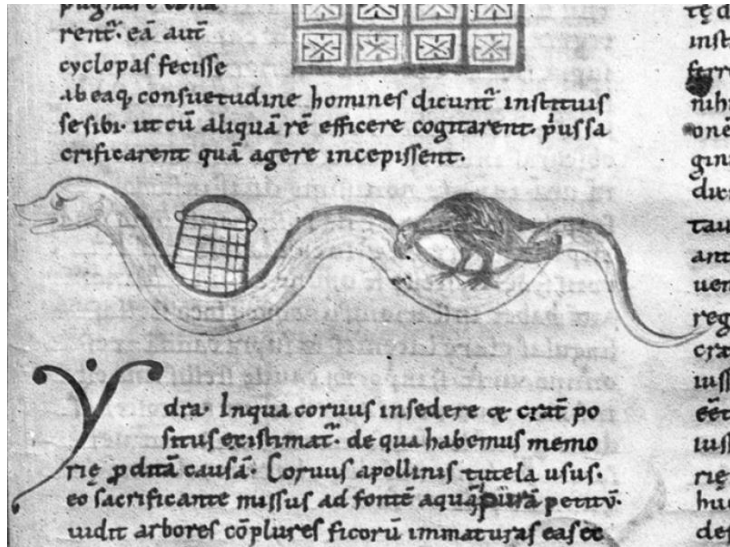 rent͛. eā aut̄
cyclopas fecisse
ab eaq; consuetudine homines dicunt͛ instituis
se sibi. ut cū aliquā rē efficere cogitarent. p̓us sa
crificarent quā agere incepissent.
Ydra. Inqua coruus insedere & crat̄ po
situs existimat͛. de qua habemus memo
rię ꝓditā causā. Coruus apollinis tutela usus.
eo sacrificante missus ad fontē aquā purā petitū.
uidit arbores cōplures ficorū immaturas eas ex
tę d
inst
ferr
nihi
onē
gini
dic
tau
ant
uen
reg
cra
iuss
eēt
iuss
rię
hu
def